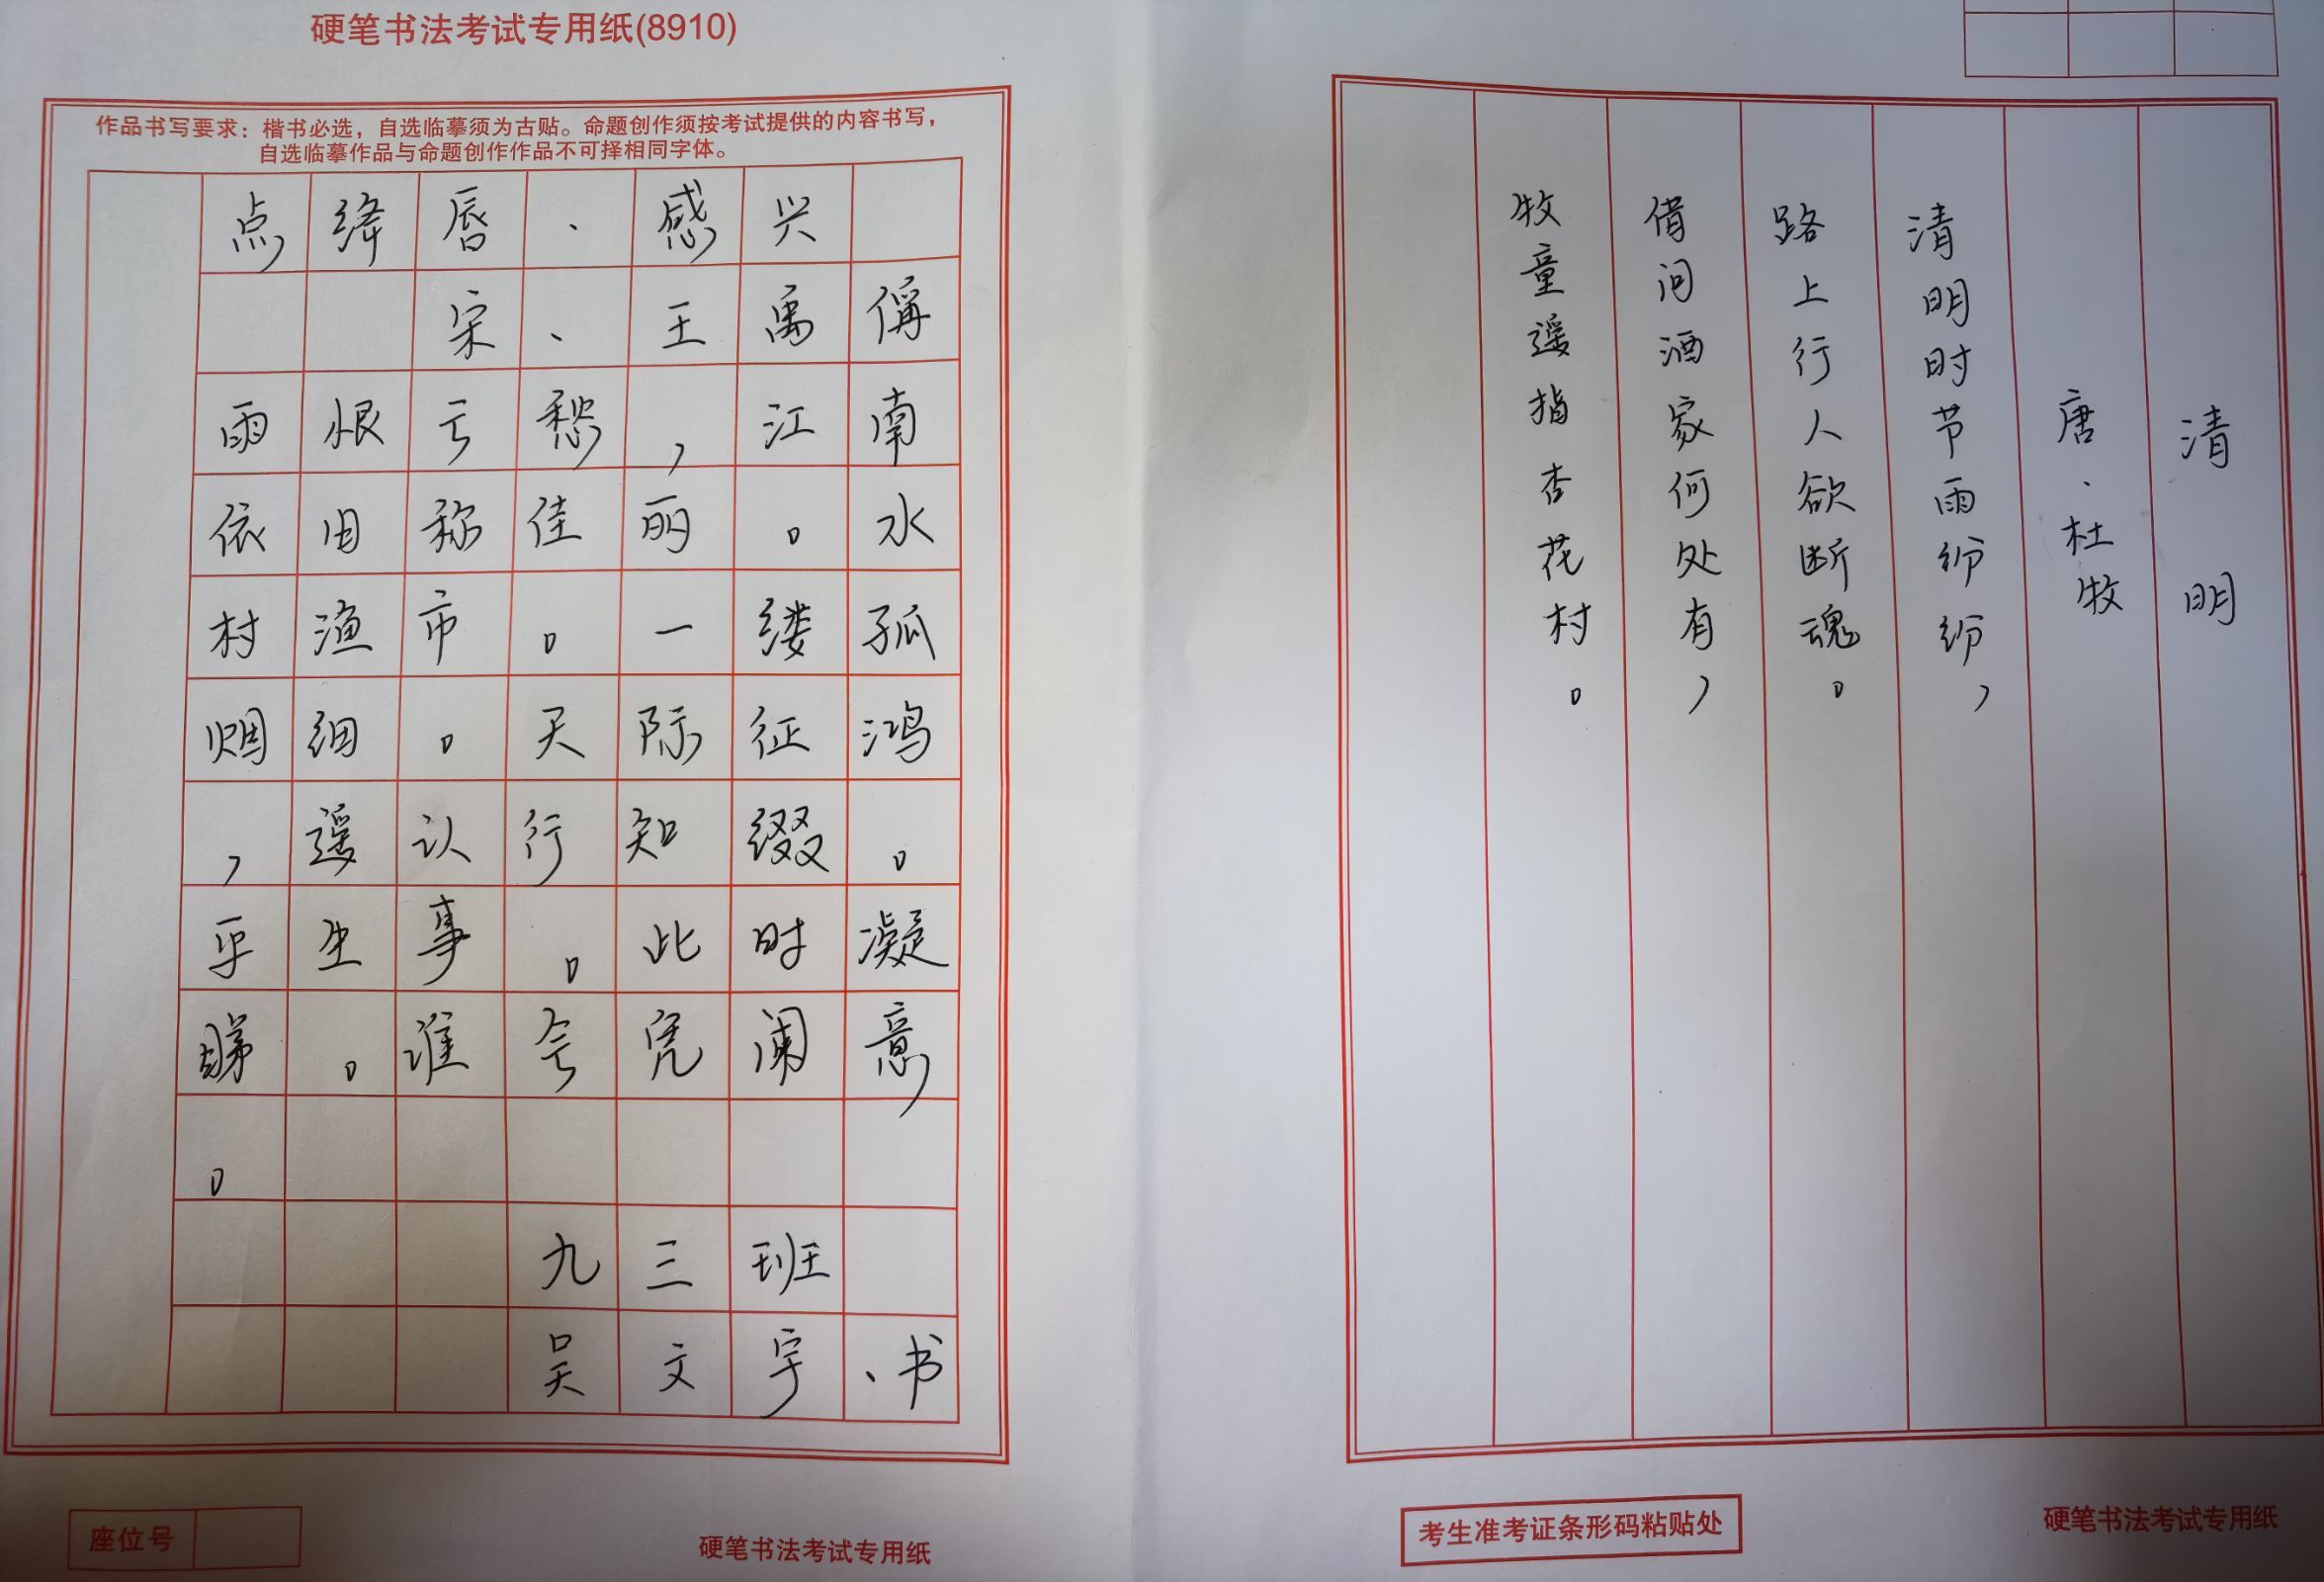 硬笔书法考试专用纸(8910)
作品书写要求：楷书必选，自选临摹须为古贴。命题创作须按考试提供的内容书写，
自选临摹作品与命题创作作品不可择相同字体。
点绛唇、感兴
宋、王禹偁
雨恨云愁，江南
依旧称佳丽。水
村渔市。一缕孤
烟细。天际征鸿
，遥认行知缀。
平生事。此时凝
睇。谁会凭阑意
。
九三班
吴文宇、书
座位号
硬笔书法考试专用纸
清明
唐、杜牧
清明时节雨纷纷，
路上行人欲断魂。
借问酒家何处有，
牧童遥指杏花村。
考生准考证条形码粘贴处
硬笔书法考试专用纸